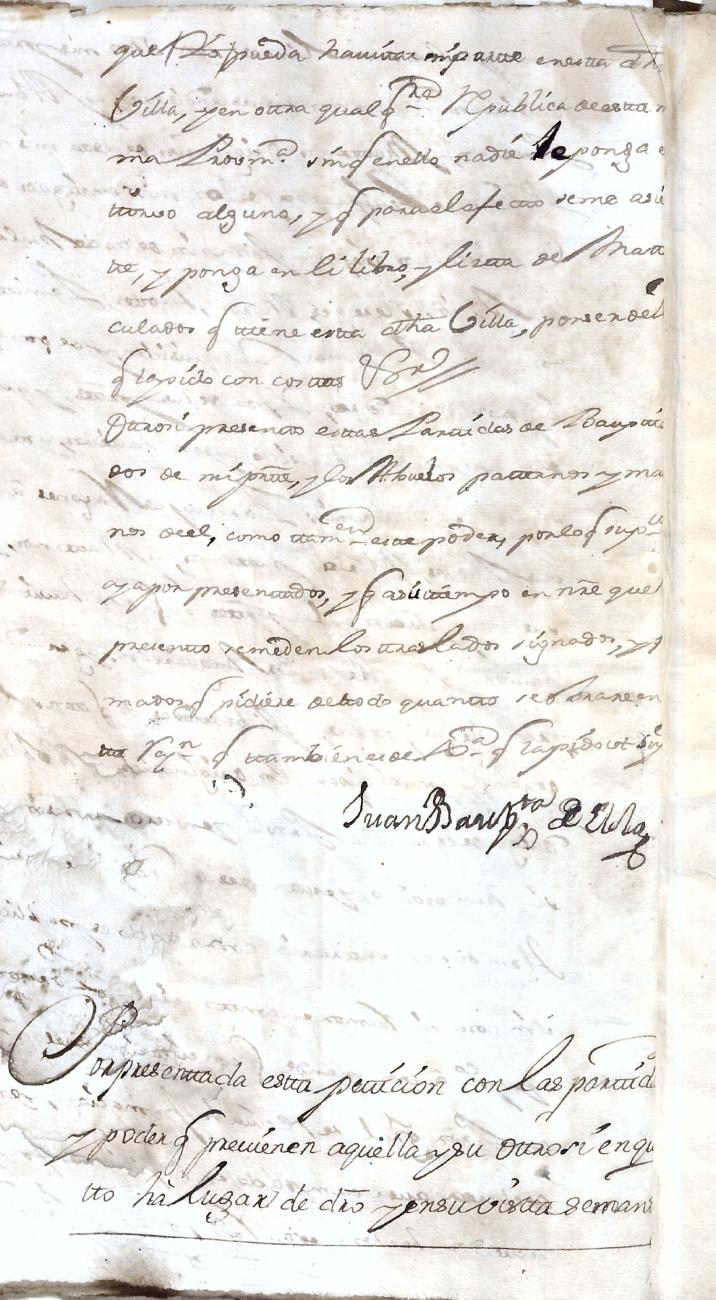 que pueda havitar mi parte en esta dha
Villa, y en ottra qualqra Republica de esta m
ma Provinª sin q en ello nadie le ponga e
ttorvo alguno, y q para el efecto se me asie
tte, y ponga en li libro, y listta de Mattri
culados q ttiene estta dha Villa, por ser de
q la pido con costtas
Ottrosi presentto esttas Parttidas de Bapttis
dos de mi partte, y los Abuelos patternos y ma
nos de el, como ttamen este poder, por lo q supco
aya por presenttados, y q a su tiempo en nre que
presentto se me den los ttraslados signados, y
mados q pidiere de ttodo quantto se obrare en
tta q ttambien es de q la pido ut
Juan Baupta de Elola
Por presenttada estta petticion con las parttid
y poder q previenen aquella y su Ottrosi en qu
tto hà lugar de dro y en su vistta se man